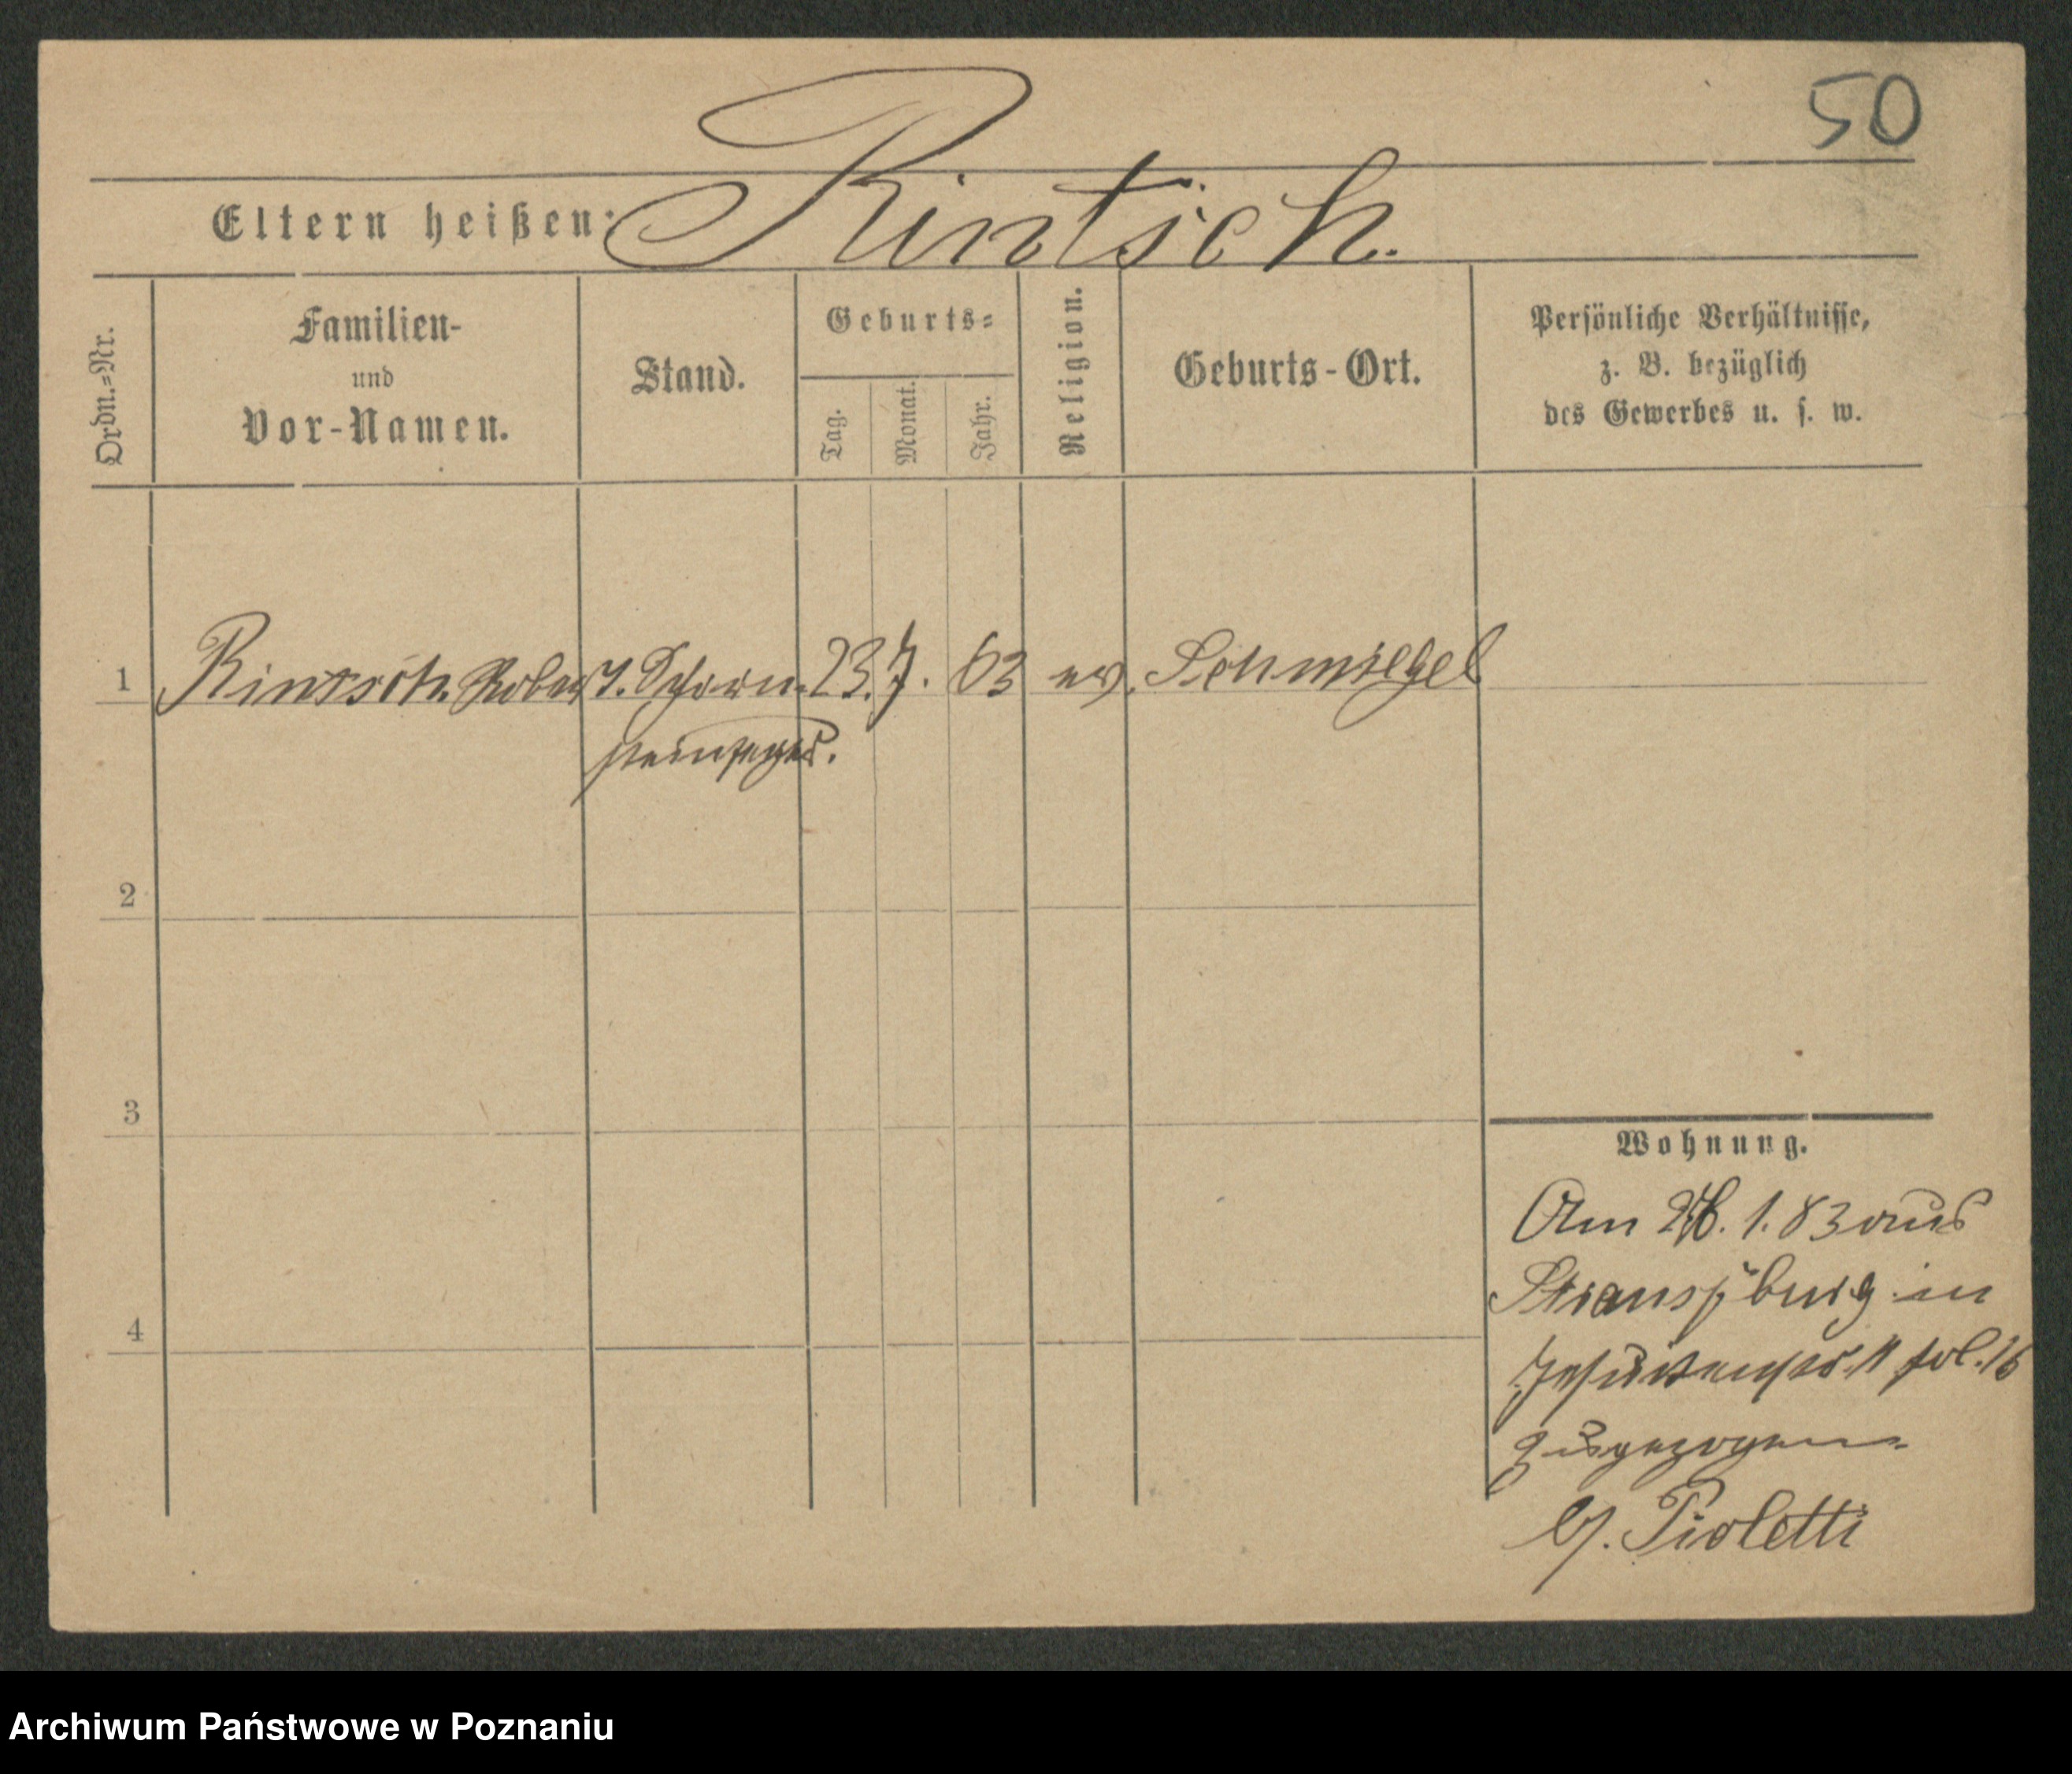 50
Eltern heißen: Rintsch.
Ordn.=Nr.
Familien-
und
Vor-Namen.
Stand.
Geburts=
Tag.
Monat.
Jahr.
Religion.
Geburts-Ort.
Persönliche Verhältnisse,
z. B. bezüglich
des Gewerbes u. s. w.
1 Rintsch. Robert. Schorn- 23. 7. 63 ev. Schmiegel
steinfeger.
2
3
4
Wohnung.
Am 1. 83 aus
in
Jesuitenstr. 11 fol. 16
zugezogen
b/. Pioletti
Archiwum Państwowe w Poznaniu